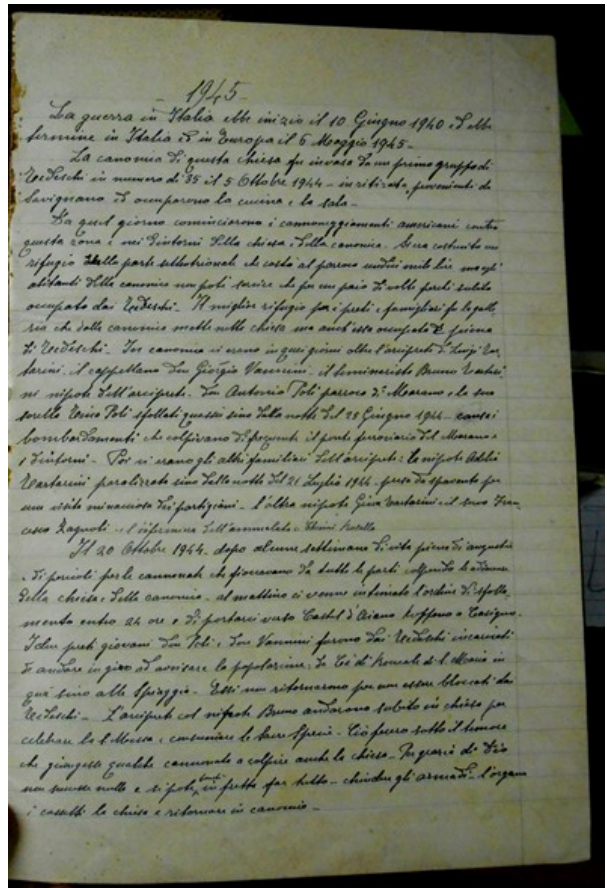 1945
La guerra in Italia ebbe inizio il 10 Giugno 1940 ed ebbe
termine in Italia ed in Europa il 6 Maggio 1945 -
La canonica di questa chiesa fu invasa da un primo gruppo di
Tedeschi in numero di 35 il 5 Ottobre 1944 - in ritirata, provenienti da
Savignano ed occuparono la cucina e la sala -
Da quel giorno cominciarono i cannoneggiamenti americani contro
questa zona e nei dintorni della chiesa e della canonica. Si era costruito un
rifugio dalla parte settentrionale che costò al parroco undici mila lire ma gli
abitanti della canonica non poté servire che per un paio di volte perché subito
occupato dai Tedeschi - Il miglior rifugio per i preti e famigliari fu la galle
ria che dalla canonica mette nella chiesa ma anch'essa occupata e piena
di Tedeschi - In canonica vi erano in quei giorni oltre l'arciprete D. Luigi Ven
tarini, il cappellano Don Giorgio Vannini, il seminarista Bruno
ni nipote dell'arciprete - Don Antonio Poli parroco di Marano e la sua
sorella Poli sfollati quassù sino dalla notte del 25 Giugno 1944 - causa i
bombardamenti che colpivano di frequente il ponte ferroviario del Marano e
i dintorni - Poi vi erano gli altri familiari dell'arciprete: la nipote Adelia
paralizzata sino dalla notte del 21 Luglio 1944 - presa da spavento per
una visita minacciosa dei partigiani - l'altra nipote Gina e il suo Fran
cesco Zagnoli - e l'infermiera dell'ammalata
Il 20 Ottobre 1944, dopo alcune settimane di vita piena di angustie
e di pericoli per le cannonate che fioccavano da tutte le parti
della chiesa e della canonica - al mattino ci venne intimato l'ordine di sfolla
mento entro 24 ore e di portarci verso Castel d'Aiano Roffeno e Cereglio -
I due preti giovani Don Poli e Don Vannini furono dai Tedeschi incaricati
di andare in giro ad avvisare la popolazione: da di Roncale di S. Maria in
qua sino alla Spiaggia - Essi non ritornarono per non essere bloccati dai
Tedeschi - L'arciprete col nipote Bruno andarono subito in chiesa per
celebrare la S. Messa e consumare le Sacre Specie - Ciò fecero sotto il timore
che giungesse qualche cannonata a colpire anche la chiesa - Per grazia di Dio
non successe nulla e si poté in fretta far tutto - chiudere gli armadi - l'organo
i cassetti la chiesa e ritornare in canonica -